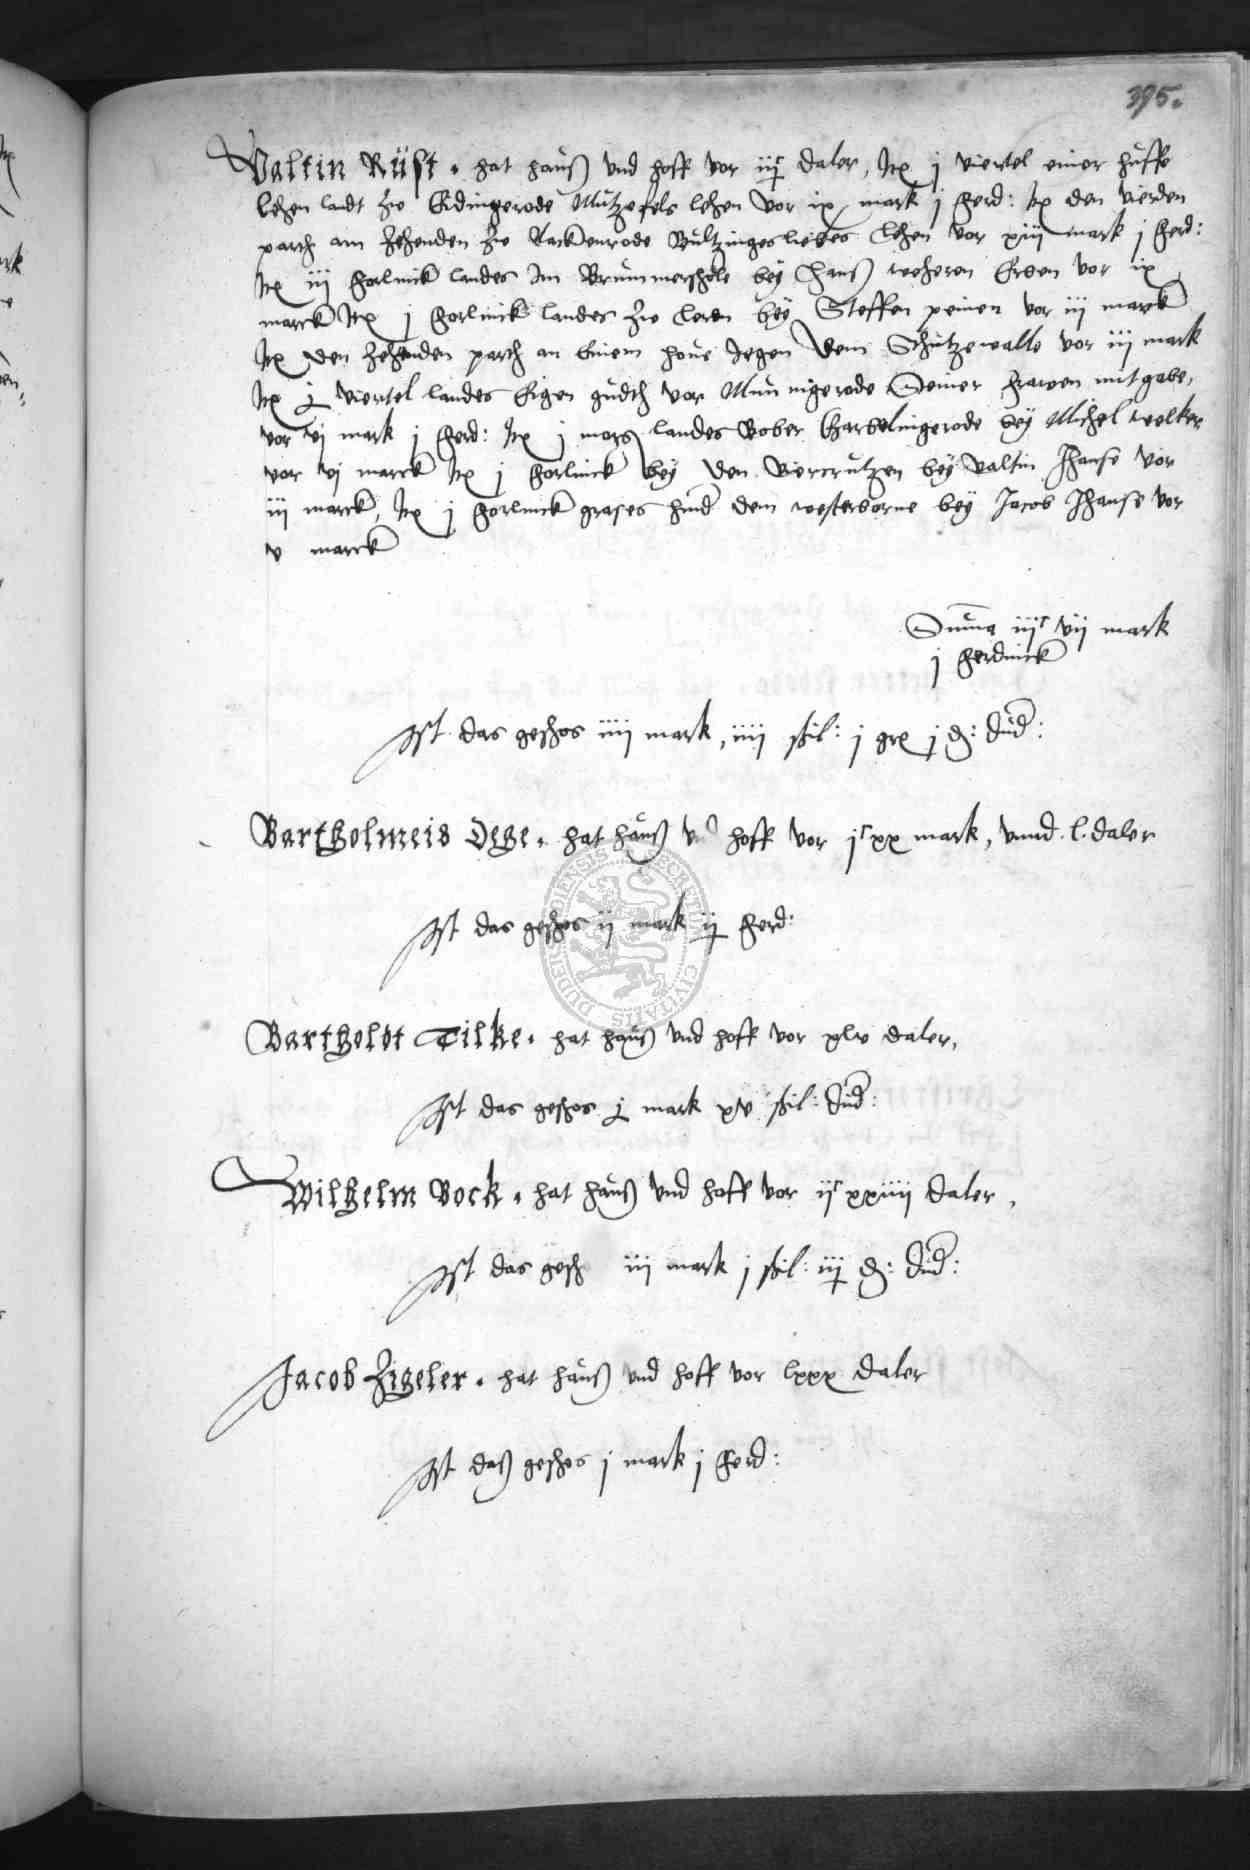 395.
Valtin Rüst. hat hauß vnd hoff vor iijc daler, Itx j viertel einer huffe
lehen landt zw Eidingerode Mützefels lehen vor ix mark j ferd: Itx den vierden
parth am zehenden zw Rackenrode Bültzingesliebes lehen vor xiij mark j ferd:
Itx iij forlinck landes im Brummershole bey Hans weheren Erben vor ix
marck Itx j forlinck landes zw leren bey Steffen peinen vor iij marck
Itx den zehenden parth an Einem houe Jegen dem Schützewalle vor iij mark
Itx j viertel landes Eigen gudth vor Münnigerode Seiner frawen mitgabe,
vor vj mark j ferd: Itx j morg landes Bober Gerbelingerode bey Michel welker
vor vj marck Itx j forlinck bey den Viercrützen bey Valtin Jhanse vor
iij marck, Itx j forlinck grases hind dem westerborne bey Jacob Jhanse vor
v marck
Summa iijc vij mark
j ferdinck
Ist das geschos iiij mark, iiij schil: j grx j d: Dud:
Bartholmeis Dege. hat hauß vnd hoff vor jc xx mark, vnnd l. daler
Ist das geschos ij mark ij ferd:
DUDERSTADIENSIS SECRETUM CIVITATIS
Bartholdt Tilke. hat hauß vnd hoff vor xlv daler,
Ist das geschos j mark xv schil: Dud:
Wilhelm Bock. hat hauß vnd hoff vor ijc xxiiij daler,
Ist das gesch iij mark j schil: iij d: Dud:
Jacob Zigeler. hat hauß vnd hoff vor lxxx daler
Ist daß geschos j mark j ferd: